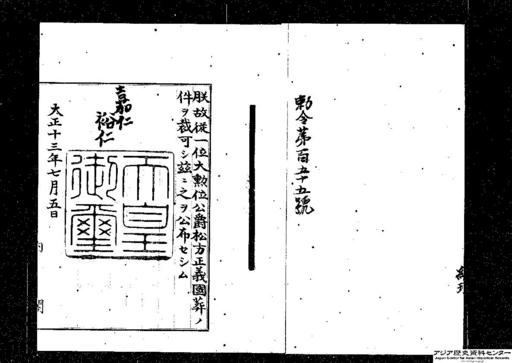 勅令第百五十五號
朕故從一位大勲位公爵松方正義國葬ノ
件ヲ裁可シ茲ニ之ヲ公布セシム
嘉仁
裕仁
天皇
御璽
大正十三年七月五日
内
閣
アジア歴史資料センター
Japan Center for Asian Historical Records